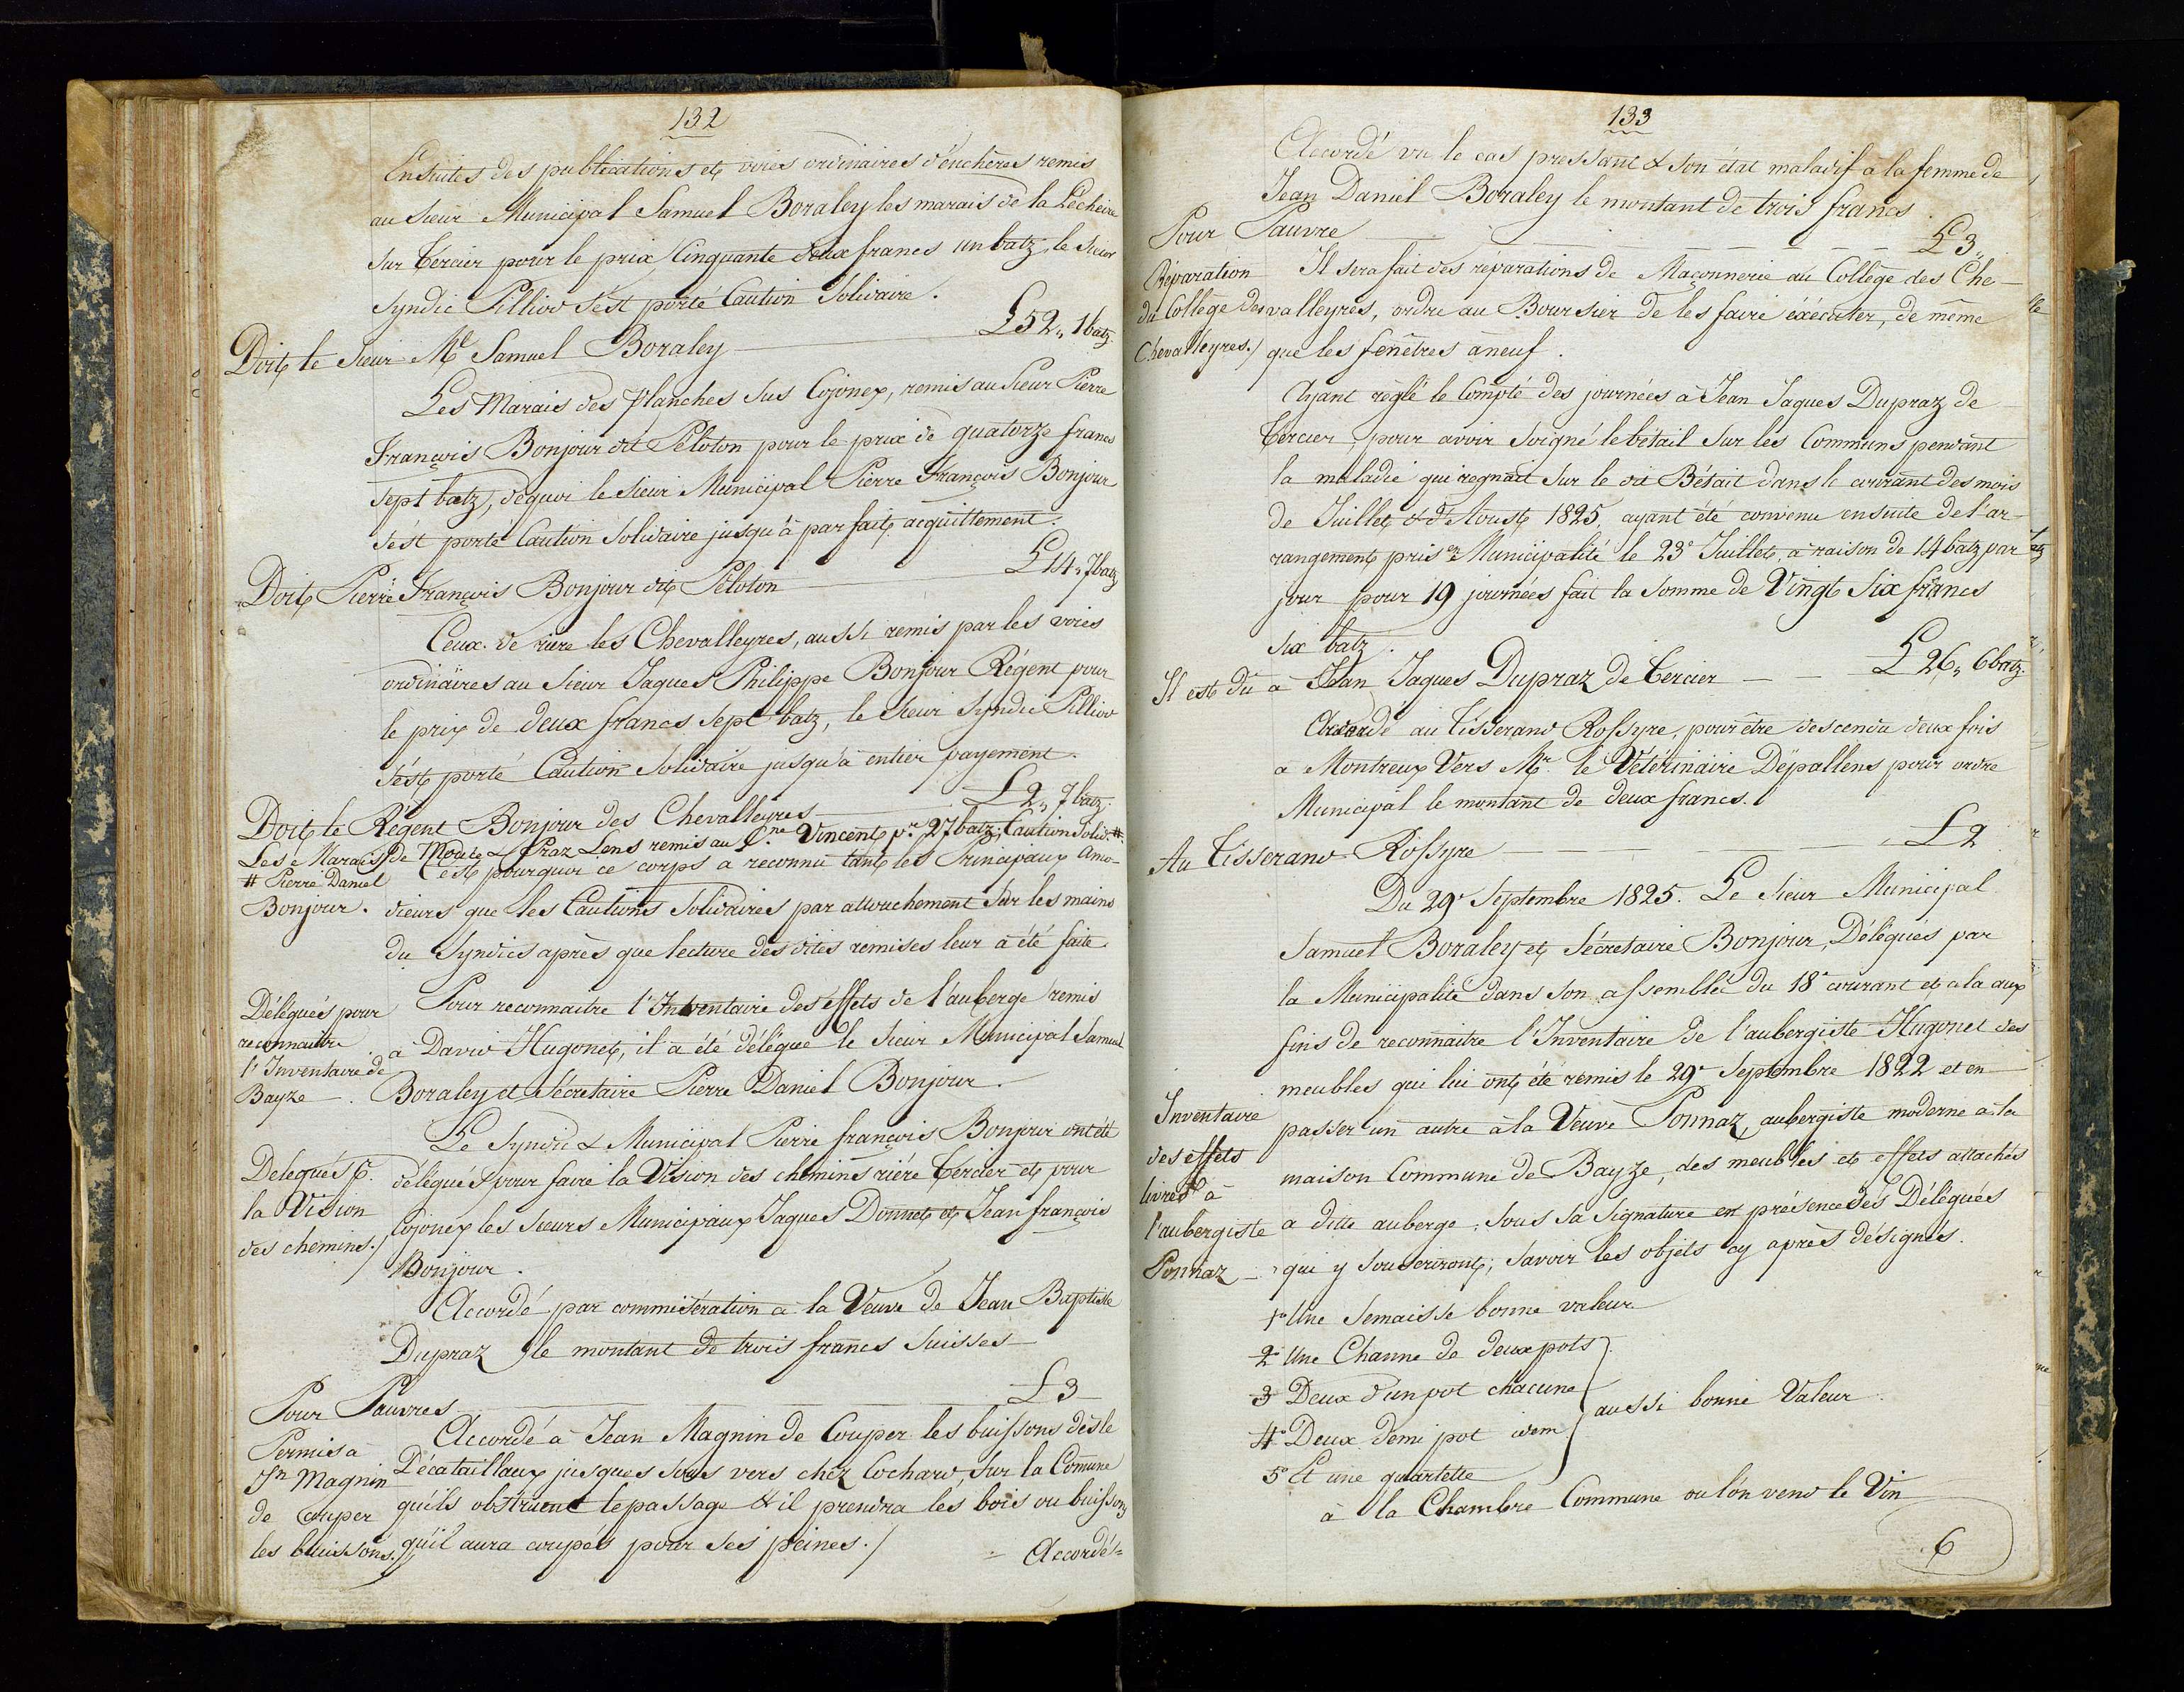 132
Ensuites des publications et voies ordinaires d'énchères remis
au Sieur Municipal Samuel Boraley les marais de la Lécheire
sur Tercier pour le prix Cinquante deux francs un batz, le Sieur
Syndic Pilliod s'est porté Caution Solidaire.
£52,, 1 batz.
Doit le Sieur Ml Samuel Boraley
Les Marais des Planches sus Cojonex, remis au Sieur Pierre
François Bonjour dit Peloton pour le prix de quatorze francs
sept batz, dequoi le Sieur Municipal Pierre François Bonjour
s'est porté Caution Solidaire jusqu'à parfait acquittement.
£14,, 7 batz
Doit Pierre François Bonjour dit Peloton
Ceux de rière les Chevalleyres, aussi remis par les voies
ordinaires au Sieur Jaques Philippe Bonjour Régent pour
le prix de deux francs sept batz, le Sieur Syndic Pilliod
s'est porté Caution Solidaire jusqu'à entier payement.
£2,, 7 batz.
Doit le Régent Bonjour des Chevalleyres
Les Marais de & Praz Lens remis au Vincent pr. 27 batz, Caution Solid. #
# Pierre Daniel
Bonjour.
C'est pourquoi ce corps a reconnu tant les Principaux Amo-
dieurs que les Cautions Solidaires par attouchement sur les mains
du Syndics après que lecture des dites remises leur à été faite.
Délégués pour
reconnaitre
l'Inventaire de
Bayze.
Pour reconnaitre l'Inventaire des éffets de l'auberge remis
à David Hugonet, il a été délégué le Sieur Municipal Samuel
Boraley et Sécretaire Pierre Daniel Bonjour.
Delegués p.
la Vision
des chemins./
Le Syndic & Municipal Pierre françois Bonjour ont été
délégués pour faire la Vision des chemins rière Tercier et pour
Cojonex les Sieurs Municipaux Jaques Donnet et Jean françois
Bonjour.
Accordé par commisération à la Veuve de Jean Baptiste
Dupraz le montant de trois francs Suisses
£3
Pour Pauvres
Permis à
Jn Magnin
de couper
les buissons./
Accordé à Jean Magnin de Couper les buissons dès le
Décataillaux jusques sous vers chez Cochard, sur la Comune
qu'ils obstruent le passage & il prendra les bois ou buissons
qu'il aura coupés pour ses peines./
= Accordé =
133
Accordé vu le cas pressant & son état maladif à la femme de
Jean Daniel Boraley le montant de trois francs
Pour Pauvre
£3,,
Réparation
du Collège des
Chevalleyres./
Il sera fait des réparations de Maçonnerie au Collège des Che-
valleyres, ordre au Boursier de les faire éxécuter, de même
que les fenêtres à neuf.
Ayant règlé le Compte des journées à Jean Jaques Dupraz de
Tercier, pour avoir soigné le bétail sur les Communs pendant
la maladie qui regnait sur le dit Bétail dans le courant des mois
de Juillet & d'Aoust 1825, ayant été convenu ensuite de l'ar-
rangement pris en Municipalité le 23e Juillet, à raison de 14 batz par
jour pour 19 journées fait la somme de Vingt Six francs
six batz.
£26,, 6 batz.
Il est dû à Jean Jaques Dupraz de Tercier
Accordé au Tisserand Rossyre, pour être descendu deux fois
a Montreux Vers Mr. le Vétérinaire Dépallens pour ordre
Municipal le montant de deux francs.
£2
Au Tisserand Rossyre
Du 29e Septembre 1825. Le Sieur Municipal
Samuel Boraley et Sécretaire Bonjour, Délégués par
la Municipalité dans son assemblée du 18e courant et a la aux
fins de reconnaitre l'Inventaire de l'aubergiste Hugonet des
meubles qui lui ont été remis le 29e Septembre 1822 et en
passer un autre à la Veuve Ponnaz, aubergiste moderne à la
maison Commune de Bayze, des meubles et effets attachés
a ditte auberge, sous sa Signature en présence des Délégués
qui y souscriront; savoir les objets cy après désignés.
Inventaire
des effets
livrés à
l'aubergiste
Ponnaz
1o Une Semaisse bonne valeur
2o Une Channe de deux pots
3o Deux d'un pot chacune
4o Deux demi pot idem
aussi bonne Valeur.
5o Et une quartette
à la Chambre Commune ou l'on vend le Vin
6